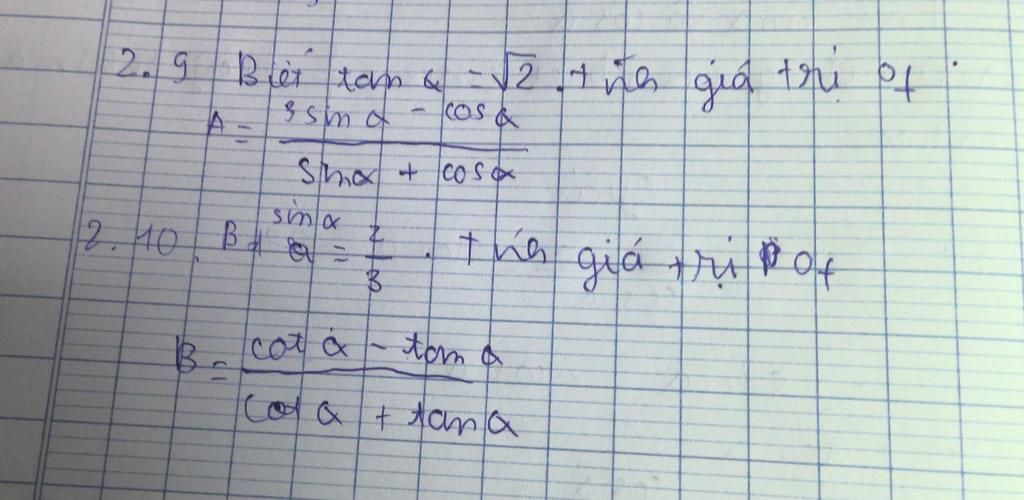 2.9 Biết tan α = √2. tính giá trị of
A = 3sinα - cosα
sinα + cosα
2.10. Bt sinα = 2/3. tính giá trị of
B = cot α - tan α
cot α + tan α